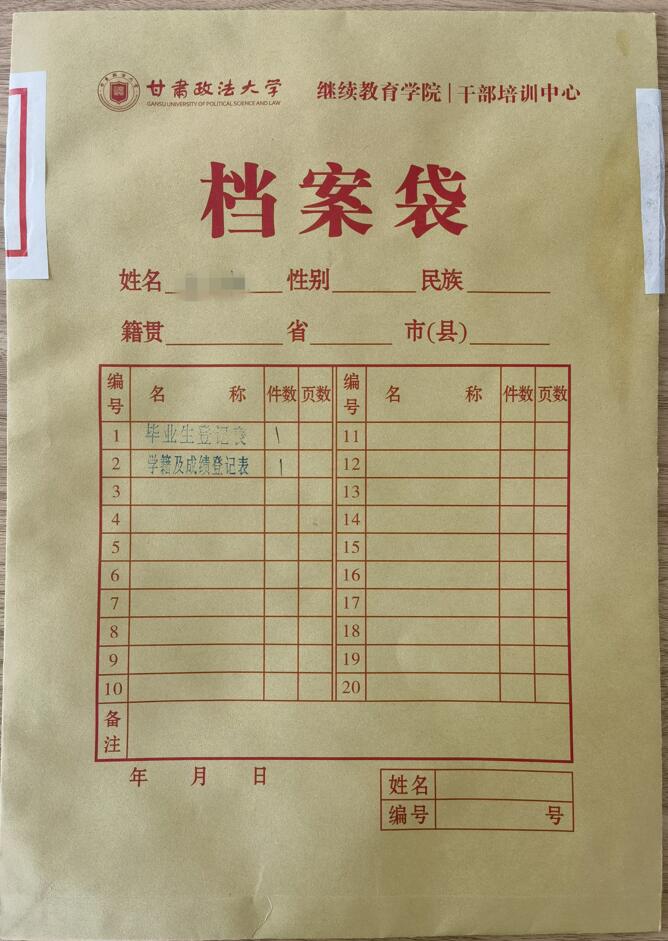 甘肃政法大学 继续教育学院|干部培训中心
GANSU UNIVERSITY OF POLITICAL SCIENCE AND LAW
档案袋
姓名 性别 民族
籍贯 省 市(县)
编号 名称 件数 页数 编号 名称 件数 页数
1 毕业生登记表 1 11
2 学籍及成绩登记表 1 12
3 13
4 14
5 15
6 16
7 17
8 18
9 19
10 20
备注
年 月 日
姓名
编号 号